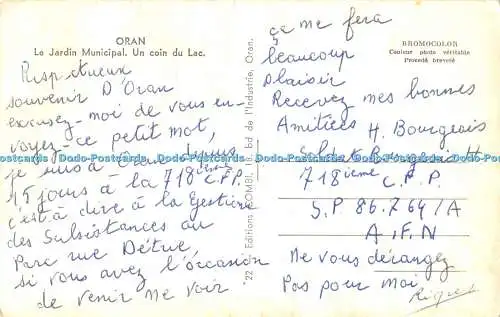 ORAN
Le Jardin Municipal. Un coin du Lac.
Respectueux
souvenir D'Oran
excusez-moi de vous en-
voyez-ce petit mot,
je suis à Oran depuis
15 jours à la 718ième C.P.P.
c'est à dire à la Gestion
des Subsistances au
Parc rue Détrie,
si vous avez l'occasion
de venir me voir
22 - Editions COMBI, 8, bd de l'Industrie, Oran.
BROMOCOLOR
Couleur photo véritable
Procédé breveté
ça me fera
beaucoup
plaisir
Recevez mes bonnes
Amitiées H. Bourgeois
Soldat Bourgeois H
718ième C.P.P.
S.P. 86.764/A
A.F.N
Ne vous dérangez
Pas pour moi
Dodo-Postcards Dodo-Postcards Dodo-Postcards Dodo-Postcards Dodo-Postcards Dodo-Postcards Dodo-Postcards